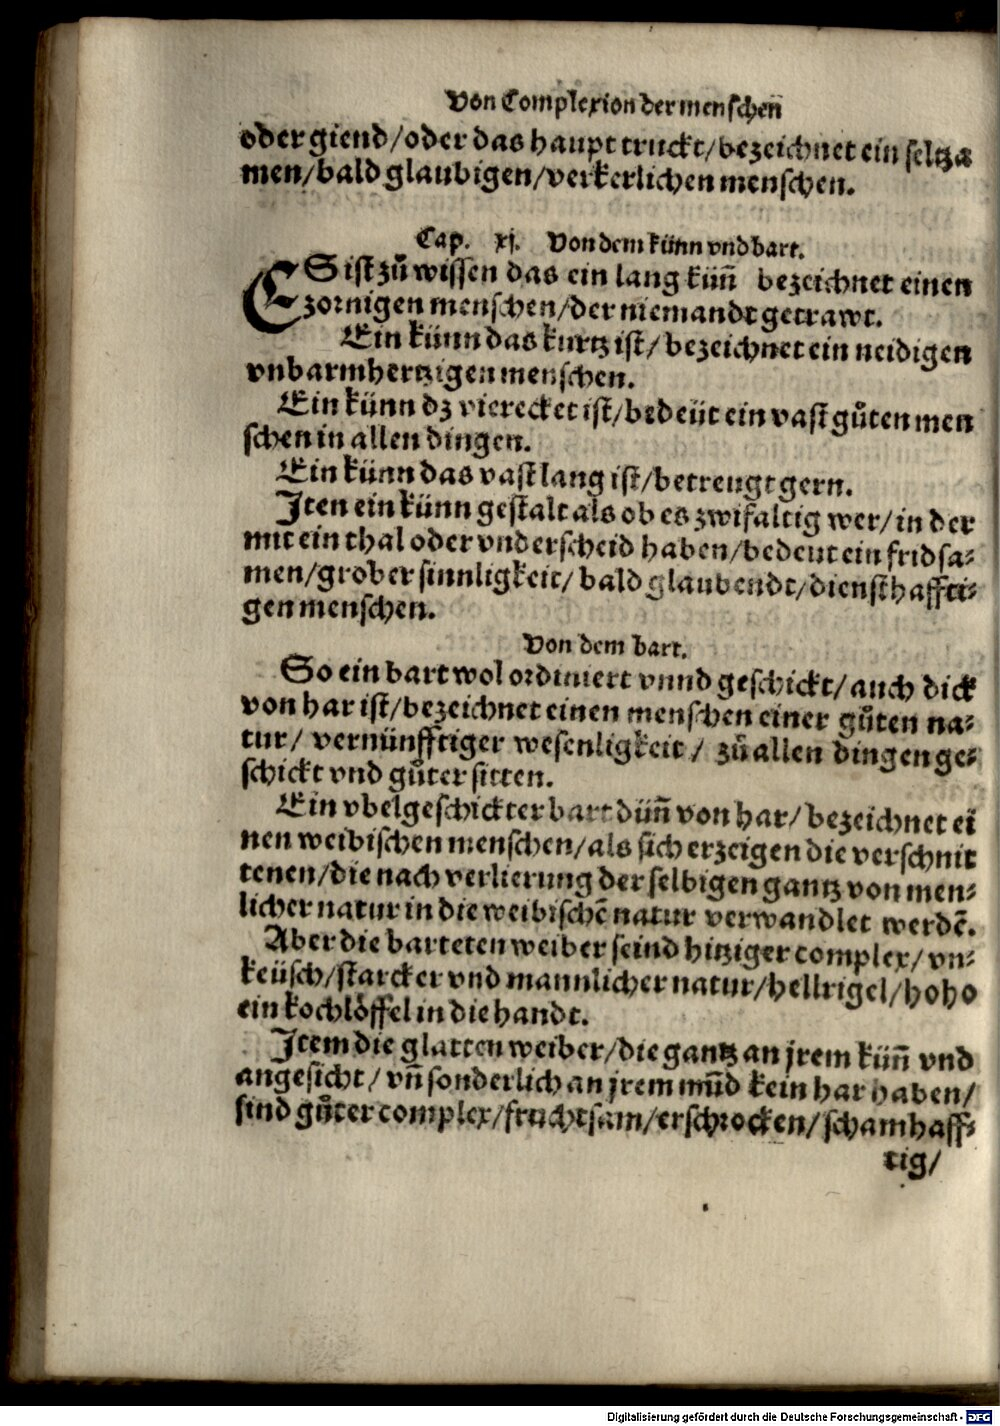 Von Complexion der menschen
oder giend/oder das haupt truckt/bezeichnet ein seltza
men/bald glaubigen/verkerlichen menschen.
Cap. xj. Von dem künn vnd bart.
ES ist zů wissen das ein lang küñ bezeichnet einen
zornigen menschen/der niemandt getrawt.
Ein künn das kurtz ist/bezeichnet ein neidigen
vnbarmhertzigen menschen.
Ein künn dz vierecket ist/bedeüt ein vast gůten men
schen in allen dingen.
Ein künn das vast lang ist/betreugt gern.
Iten ein künn gestalt als ob es zwifaltig wer/in der
mit ein thal oder vnderscheid haben/bedeut ein fridsa⸗
men/grober sinnligkeit/bald glaubendt/diensthaffti⸗
gen menschen.
Von dem bart.
So ein bart wol ordiniert vnnd geschickt/auch dick
von har ist/bezeichnet einen menschen einer gůten na⸗
tur/vernünfftiger wesenligkeit/zů allen dingen ge⸗
schickt vnd gůter sitten.
Ein vbelgeschickter bart düñ von har/bezeichnet eĩ
nen weibischen menschen/als sich erzeigen die verschnit
tenen/die nach verlierung der selbigen gantz von men⸗
licher natur in die weibischẽ natur verwandlet werdẽ.
Aber die barteten weiber seind hitziger complex/vn⸗
keüsch/starcker vnd mannlicher natur/hellrigel/hoho
ein kochlöffel in die handt.
Item die glatten weiber/die gantz an jrem küñ vnd
angesicht/vñ sonderlich an jrem mũd kein har haben/
sind gůter complex/fruchtsam/erschrocken/schamhaff⸗
tig/
Digitalisierung gefördert durch die Deutsche Forschungsgemeinschaft - DFG